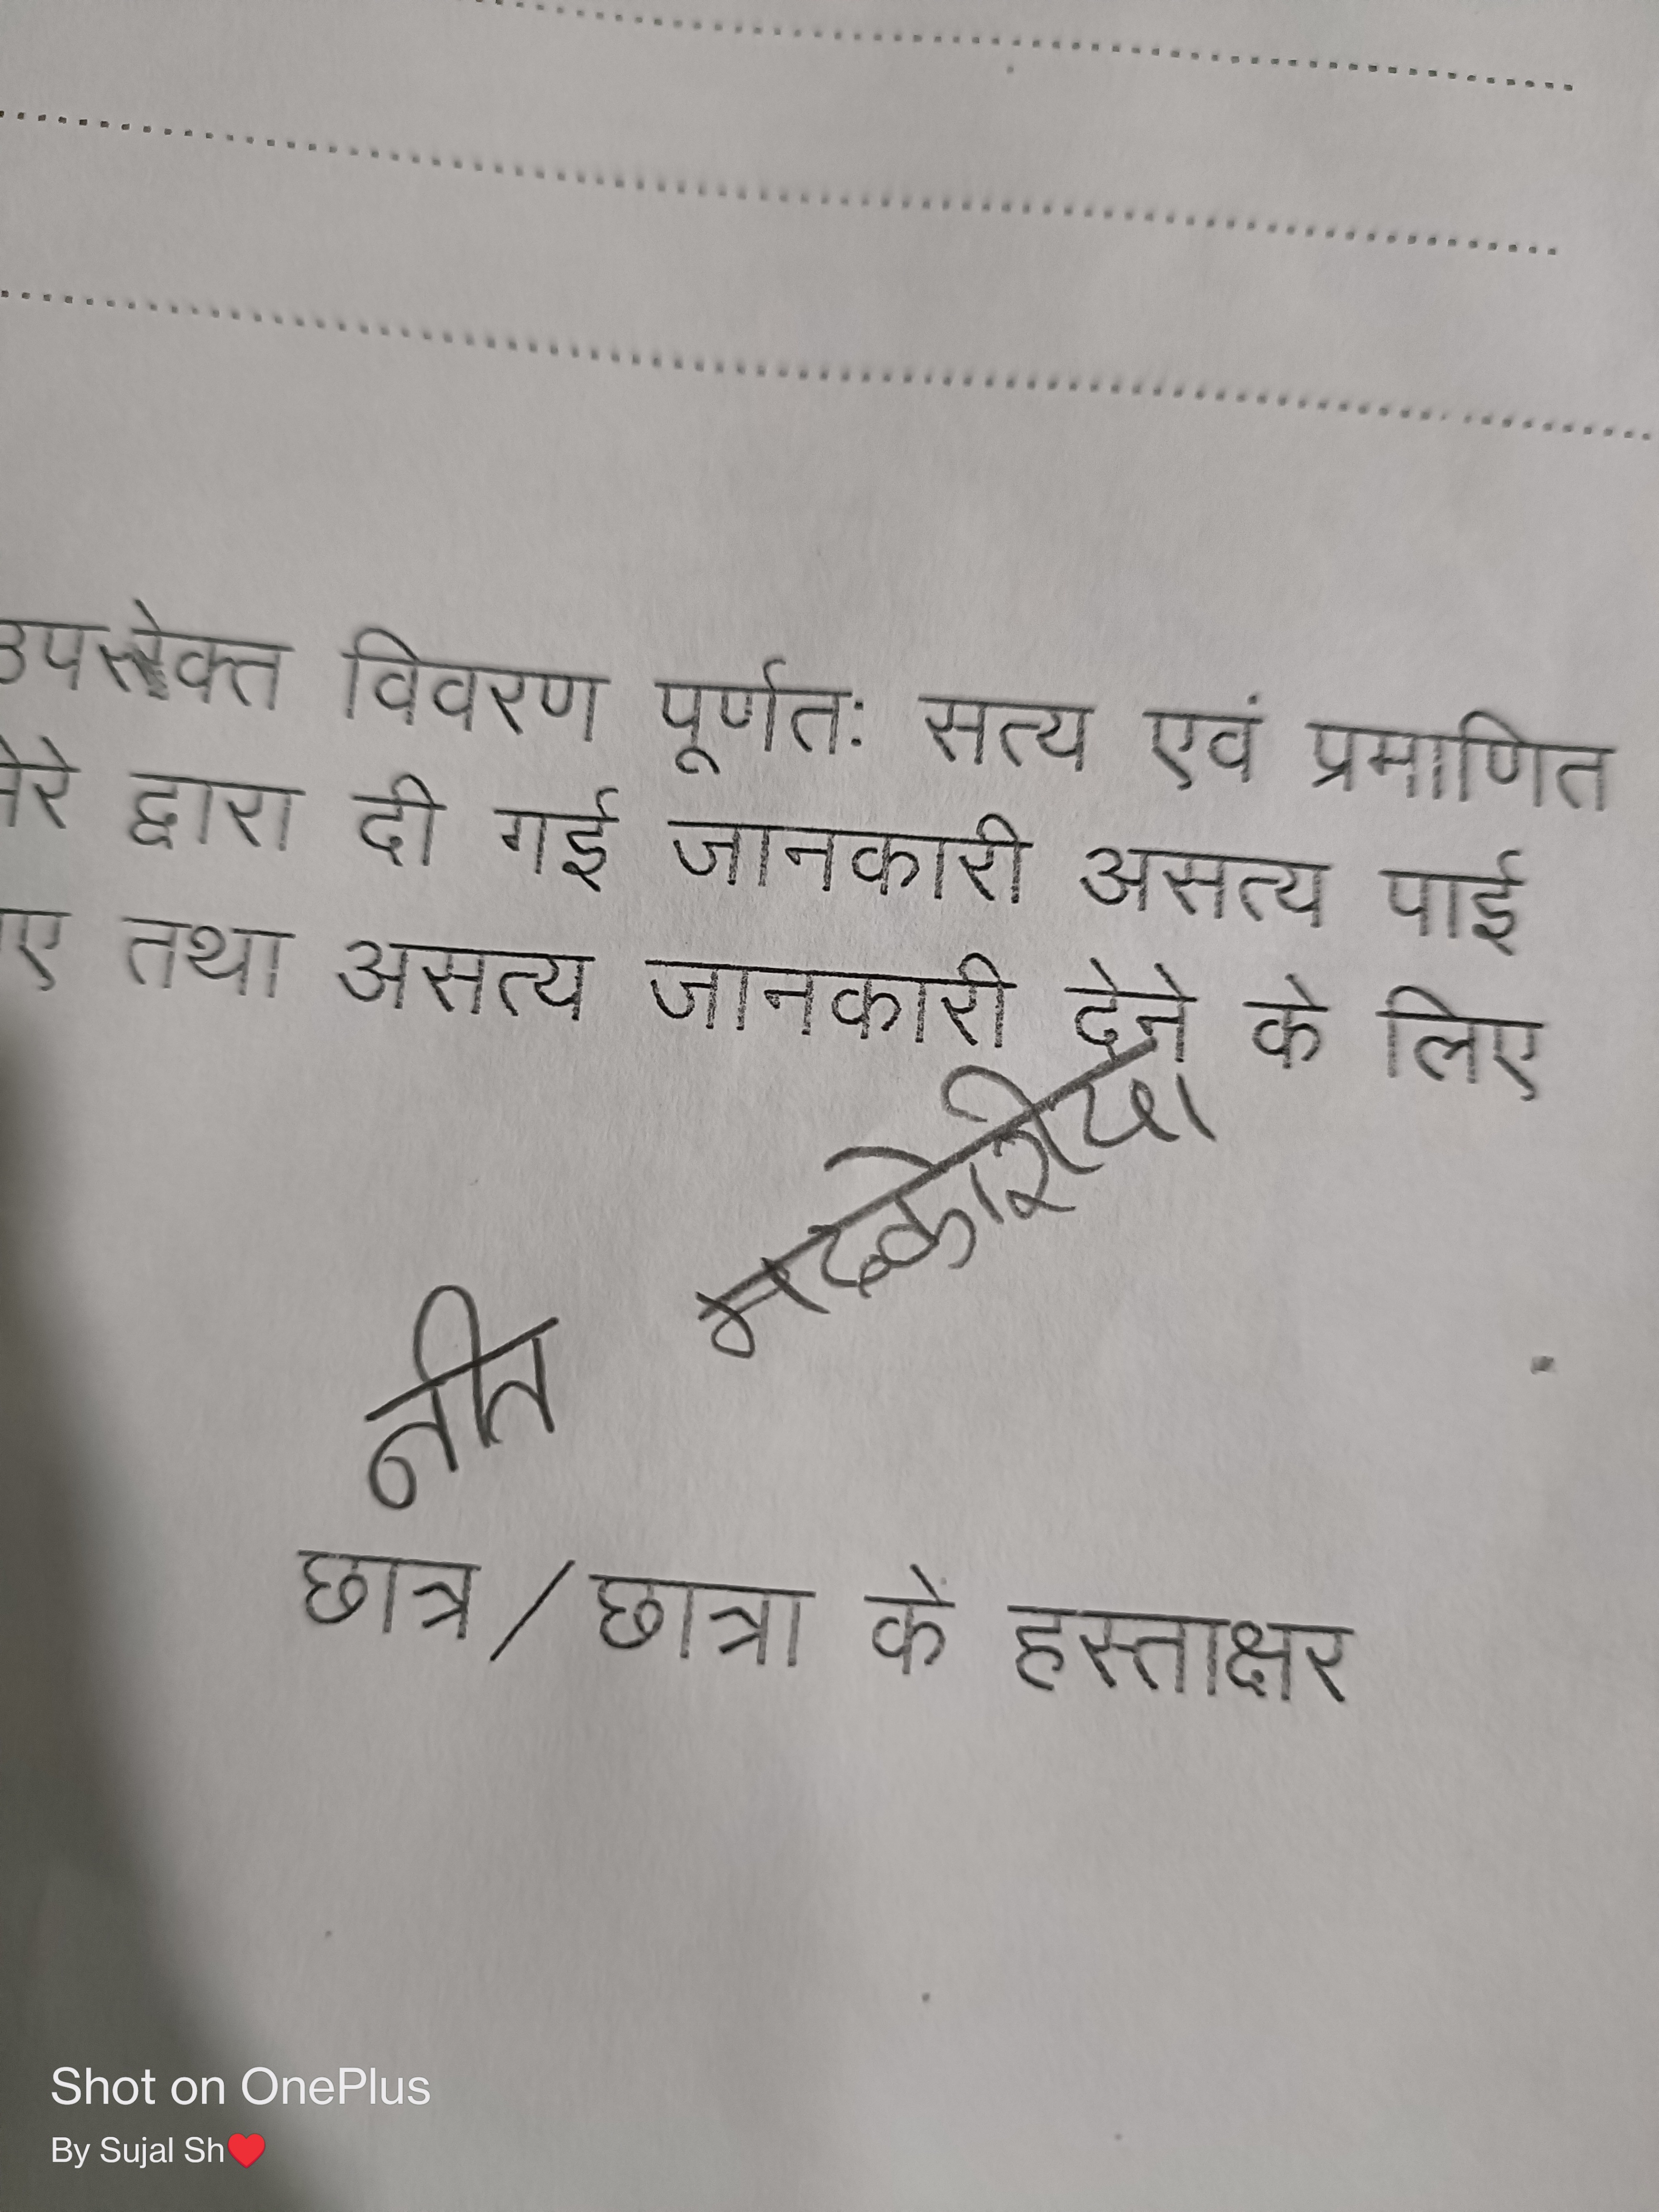 उपरोक्त विवरण पूर्णतः सत्य एवं प्रमाणित
मेरे द्वारा दी गई जानकारी असत्य पाई
ए तथा असत्य जानकारी देने के लिए
नीत
छात्र/छात्रा के हस्ताक्षर
Shot on OnePlus
By Sujal Sh❤️